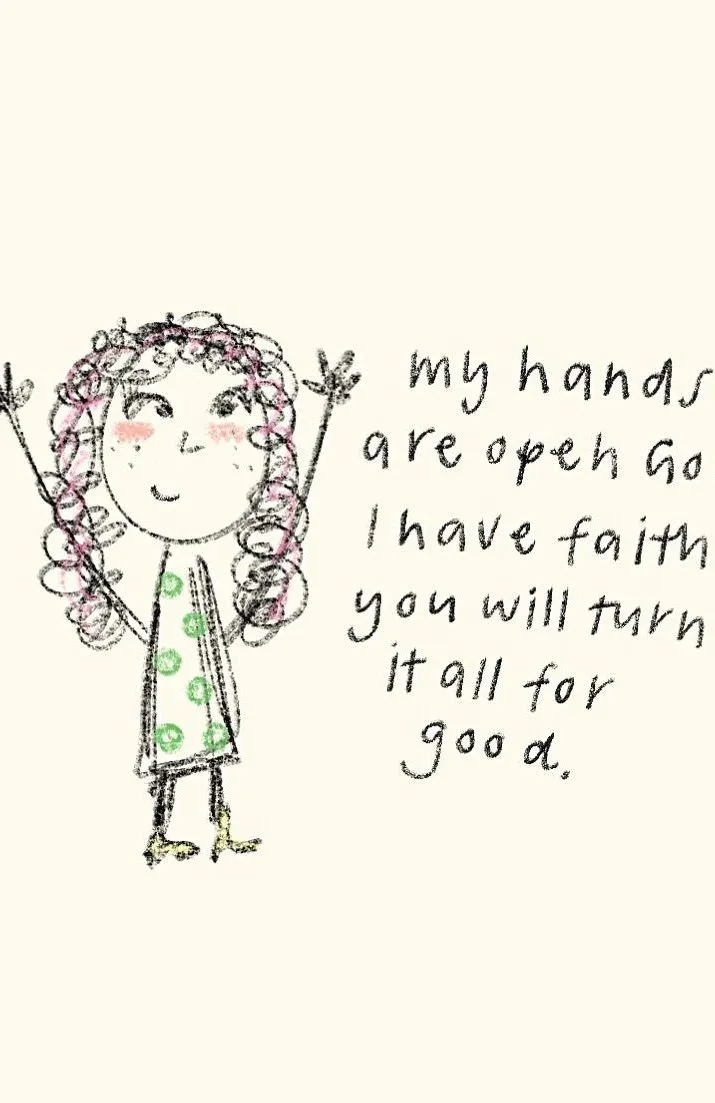 my hands
are open Go
I have faith
you will turn
it all for
good.